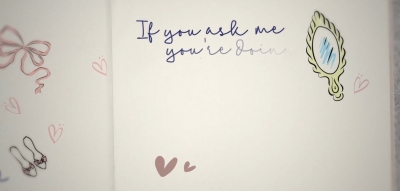 If you ask me
you're Doin